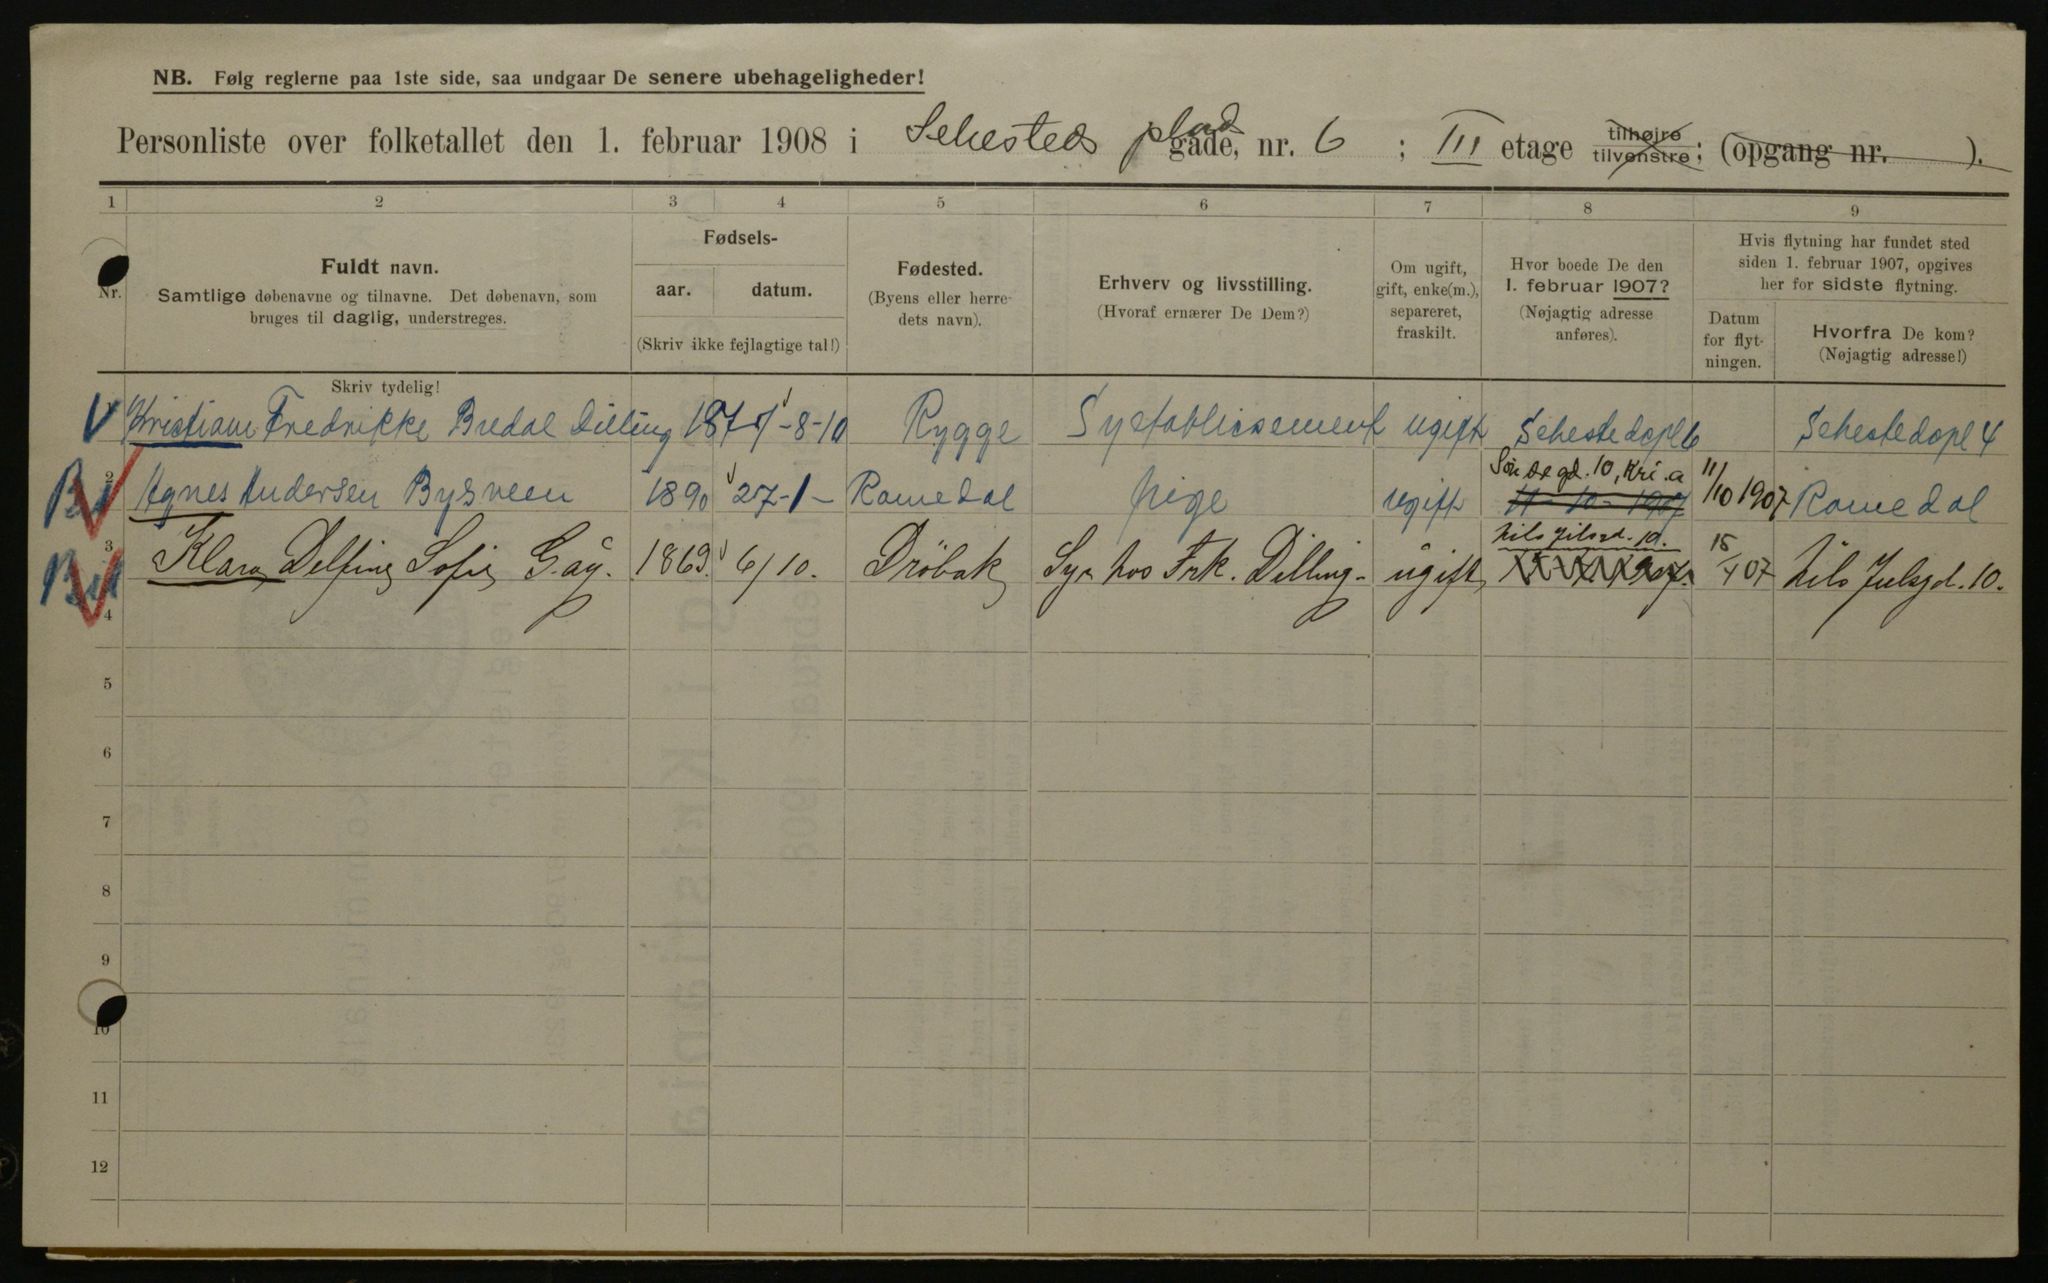 NB. Følg reglerne paa 1ste side, saa undgaar De senere ubehageligheder!
Personliste over folketallet den 1. februar 1908 i Sehesteds plads gade, nr. 6 ; III etage tilhøjre tilvenstre; (opgang nr. ).
1 2 3 4 5 6 7 8 9
Nr.
Fuldt navn.
Samtlige døbenavne og tilnavne. Det døbenavn, som
bruges til daglig, understreges.
Skriv tydelig!
Fødsels-
aar. datum.
(Skriv ikke fejlagtige tal!)
Fødested.
(Byens eller herre-
dets navn).
Erhverv og livsstilling.
(Hvoraf ernærer De Dem?)
Om ugift,
gift, enke(m.),
separeret,
fraskilt.
Hvor boede De den
1. februar 1907?
(Nøjagtig adresse
anføres).
Hvis flytning har fundet sted
siden 1. februar 1907, opgives
her for sidste flytning.
Datum
for flyt-
ningen.
Hvorfra De kom?
(Nøjagtig adresse!)
V Kristiane Fredrikke Bredal Dilling -8-10 Rygge Syetablissement ugift Sehestedspl 6 Sehestedspl 4
2 Agnes Andersen Bysveen 1890 27-1- Romedal pige ugift gd. 10, Kr.a 11/10 1907 Romedal
3 Klara Delfine Sofie Gay. 1869. 6/10. Drøbak Sye hos Frk. Dilling- ugift, Nils Julsgd. 10. 15/4 07 Nils Julsgd. 10.
4
5
6
7
8
9
10
11
12